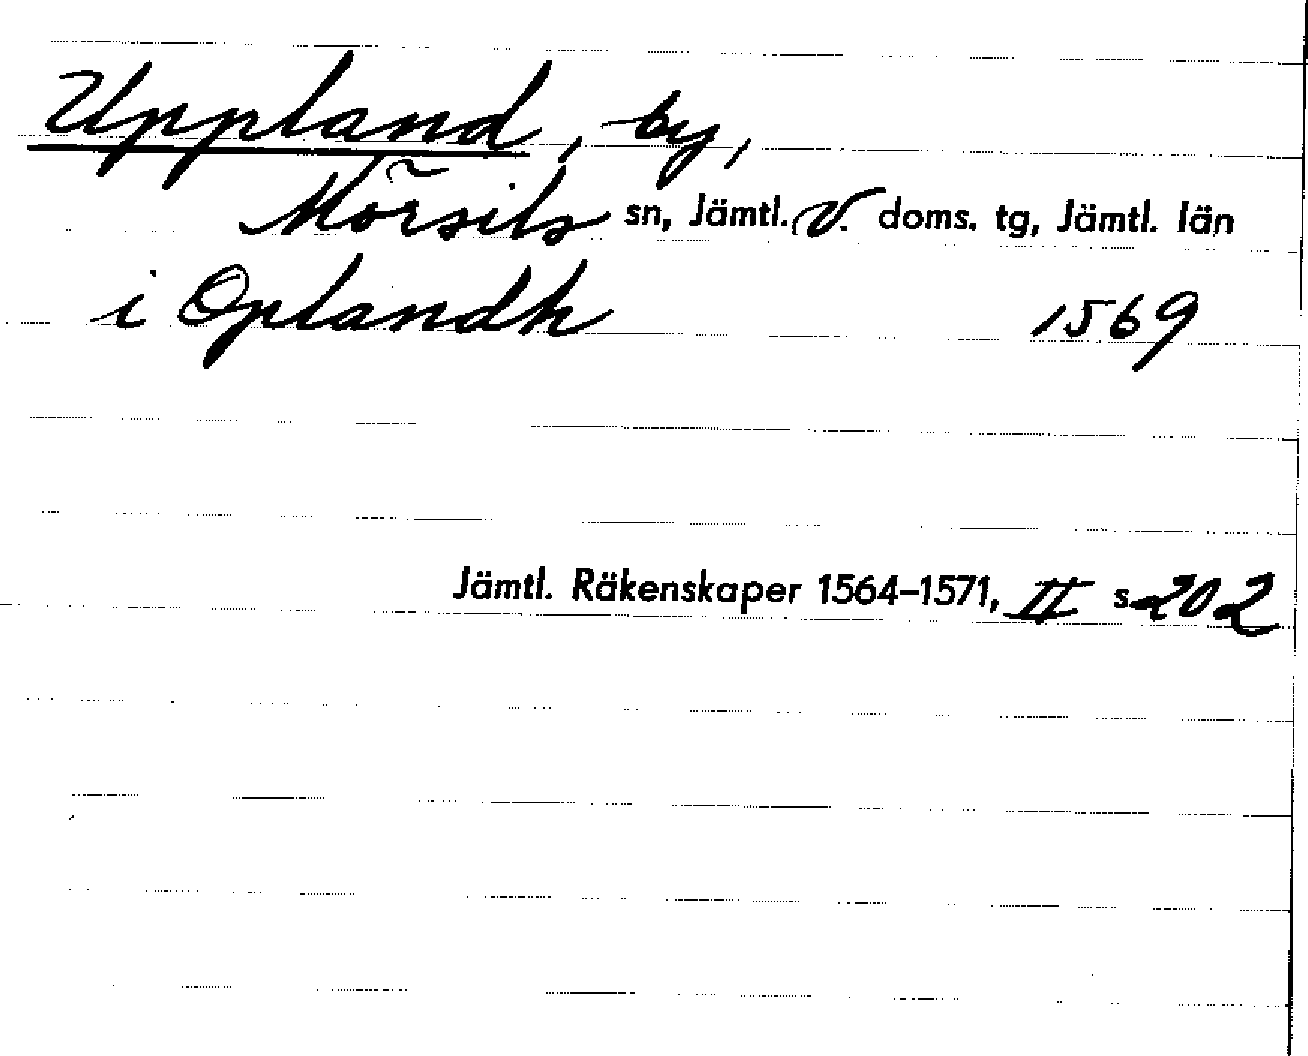 Uppland, by,
Mörsils sn, Jämtl. V. doms. tg, Jämtl. län
i Oplandh 1569
Jämtl. Räkenskaper 1564–1571, II s. 202